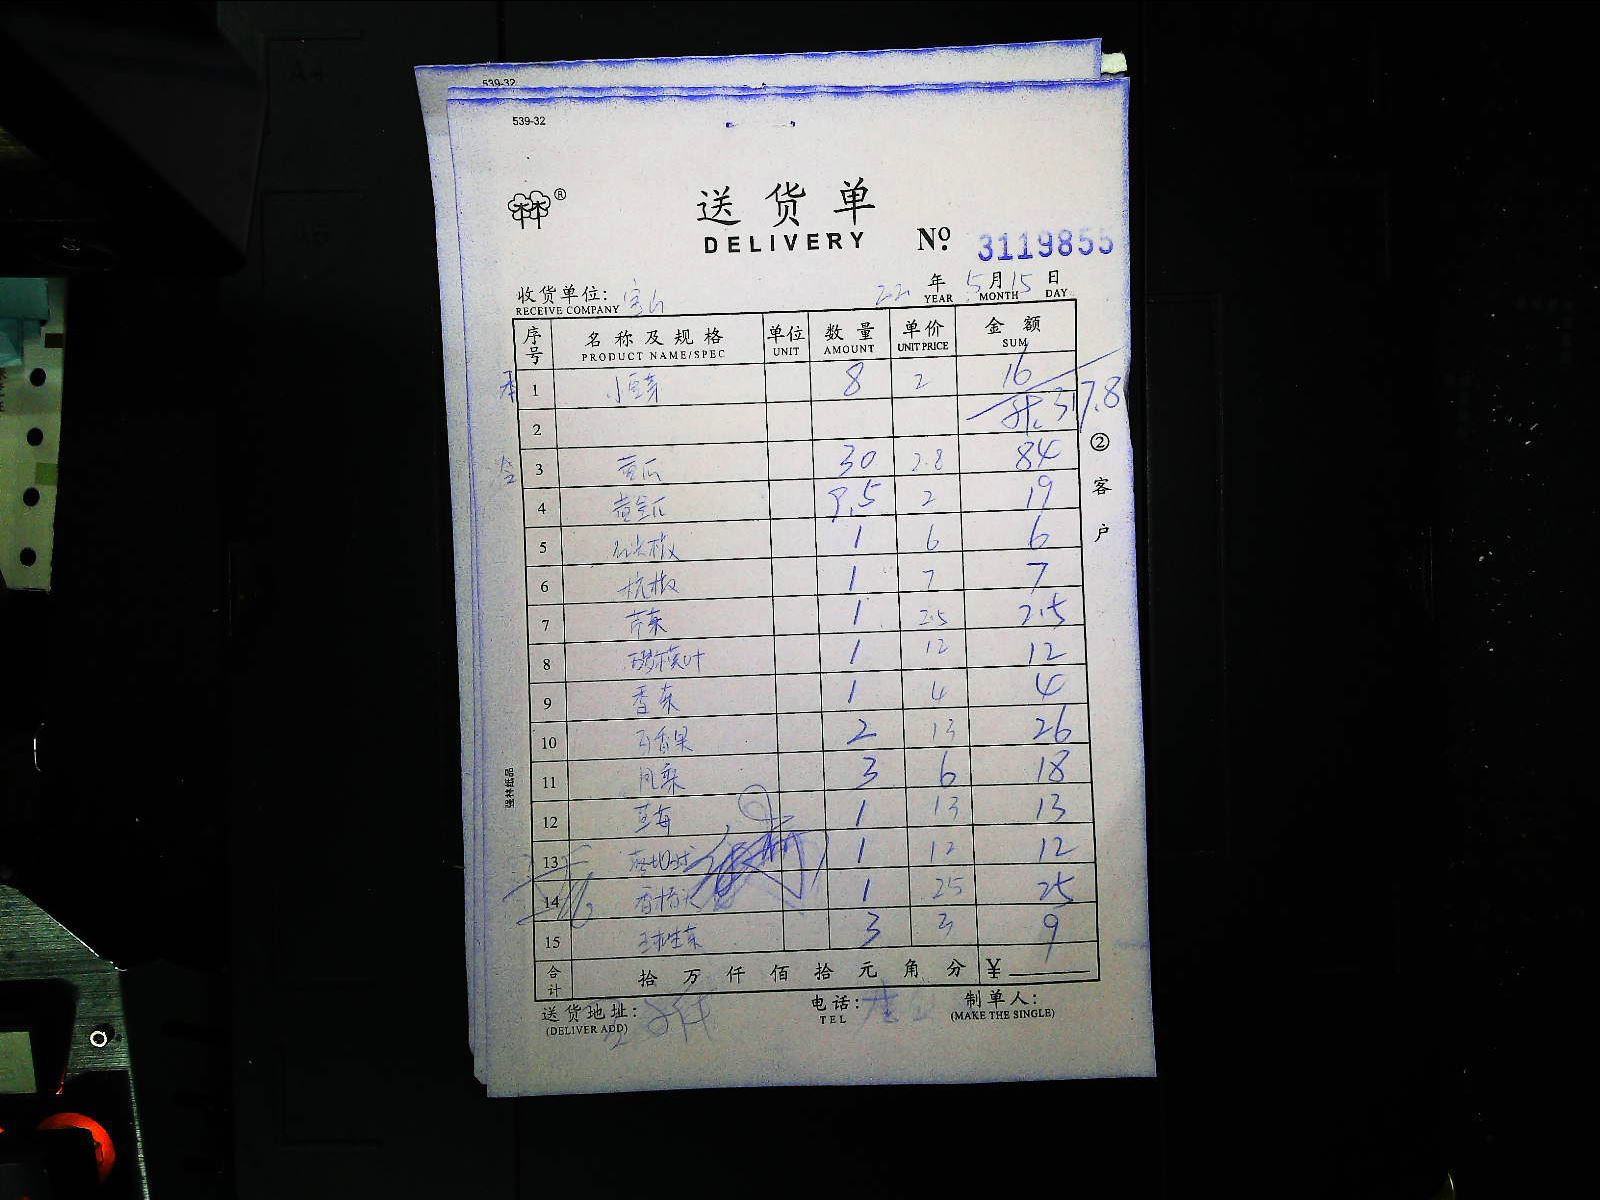 539-32
539-32
送货单
DELIVERY Nº 3119855
收货单位: 22 年 5 月 15 日
RECEIVE COMPANY YEAR MONTH DAY
序号 名称及规格 单位 数量 单价 金额
PRODUCT NAME/SPEC UNIT AMOUNT UNIT PRICE SUM
1 小豆芽 8 2 16
2 317.8
3 黄瓜 30 2.8 84
4 黄金瓜 9.5 2 19
5 1 6 6
6 杭椒 1 7 7
7 芹菜 1 2.5 2.5
8 1 12 12
9 香菜 1 4 4
10 百香果 2 13 26
11 凤梨 3 6 18
12 草莓 1 13 13
13 1 12 12
14 1 25 25
15 球生菜 3 3 9
合计 拾 万 仟 佰 拾 元 角 分 ¥
送货地址: 电话: 制单人:
(DELIVER ADD) TEL (MAKE THE SINGLE)
② 客户
强林纸品